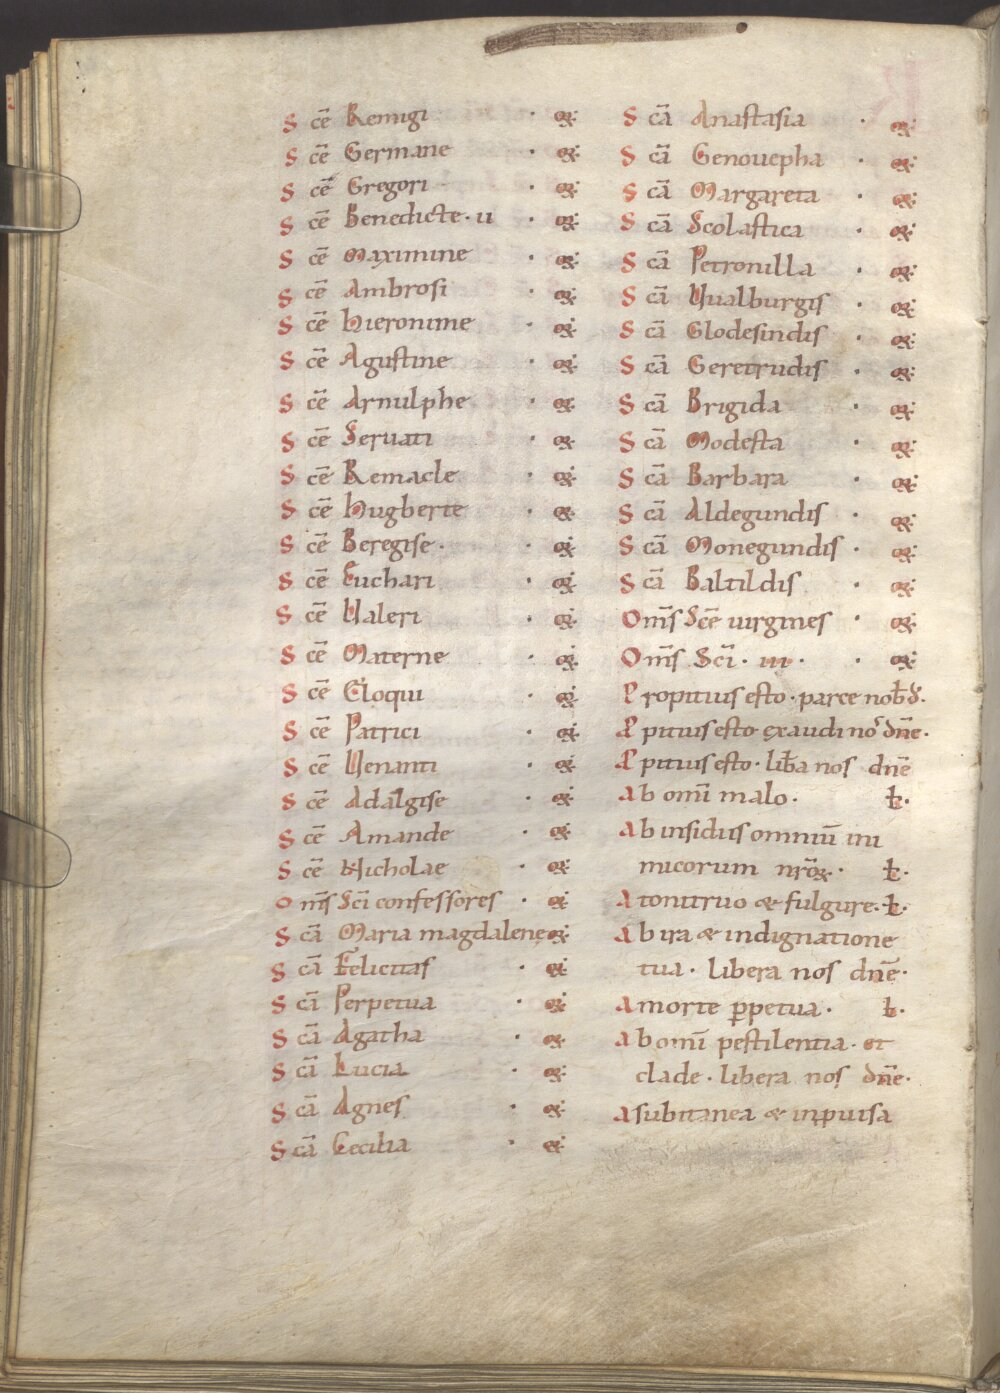 S cē Remigi · oꝝ
S cē Germane · oꝝ
S cē Gregori · oꝝ
S cē Benedicte · ii · oꝝ
S cē Maximine · oꝝ
S cē Ambrosi · oꝝ
S cē hieronime · oꝝ
S cē Agustine · oꝝ
S cē Arnulphe · oꝝ
S cē Seruati · oꝝ
S cē Remacle · oꝝ
S cē hugberte · oꝝ
S cē Beregise · oꝝ
S cē Euchari · oꝝ
S cē Ualeri · oꝝ
S cē Materne · oꝝ
S cē Eloqui · oꝝ
S cē Patrici · oꝝ
S cē Uenanti · oꝝ
S cē Adalgise · oꝝ
S cē Amande · oꝝ
S cē Nicholae · oꝝ
O mīs Sc̄i confessores · oꝝ
S cā Maria magdalene oꝝ
S cā Felicitas · oꝝ
S cā Perpetua · oꝝ
S cā Agatha · oꝝ
S cā Lucia · oꝝ
S cā Agnes · oꝝ
S cā Cecilia · oꝝ
S cā Anastasia · oꝝ
S cā Genouepha · oꝝ
S cā Margareta · oꝝ
S cā Scolastica · oꝝ
S cā Petronilla · oꝝ
S cā Uualburgis · oꝝ
S cā Glodesindis · oꝝ
S cā Geretrudis · oꝝ
S cā Brigida · oꝝ
S cā Modesta · oꝝ
S cā Barbara · oꝝ
S cā Aldegundis · oꝝ
S cā Monegundis · oꝝ
S cā Baltildis · oꝝ
O mīs Scē uirgines · oꝝ
O mīs Sc̄i · iii · · oꝝ
P ropitius esto · parce nob̄ d̄.
P pitius esto · exaudi no᷒ dn̄e ·
P pitius esto · lib̄a nos dn̄e
A b omī malo · ł.
A b insidiis omniū ini
micorum nr̄oꝝ · ł.
A tonitruo & fulgure · ł.
A b ira & indignatione
tua · libera nos dn̄e ·
A morte ꝑpetua · ł.
A b omī pestilentia · et
clade · libera nos dn̄e ·
A subitanea & inꝓuisa